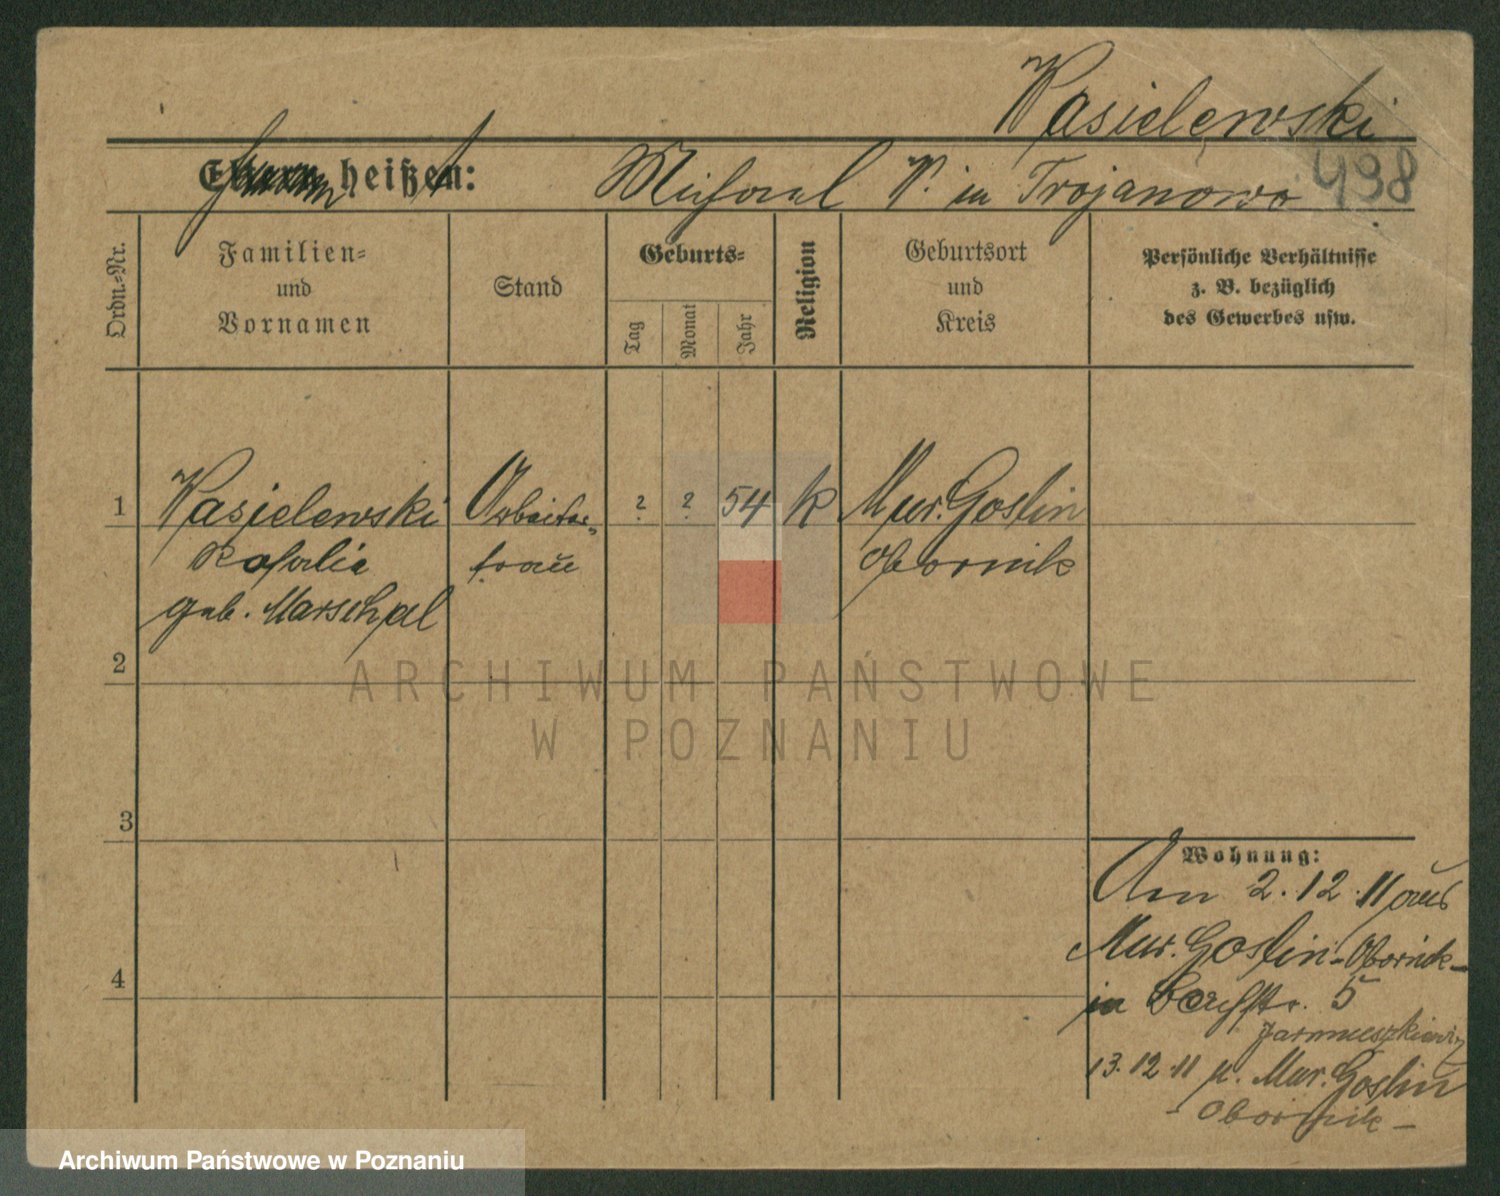 Wasielewski
498
Eltern heißen: Michael W. in Trojanowo
Ordn.-Nr.
Familien-
und
Vornamen
Stand
Geburts-
Tag
Monat
Jahr
Religion
Geburtsort
und
Kreis
Persönliche Verhältnisse
z. B. bezüglich
des Gewerbes usw.
1 Wasielewski Arbeiter- ? ? 54 k Mur. Goslin
Rosalie frau Obornik
geb. Marschal
2
3
4
ARCHIWUM PAŃSTWOWE
W POZNANIU
Wohnung:
Am 2.12.11 aus
Mur. Goslin-Obornik-
in Bachstr. 5
Jarmuszkiewicz
13.12.11 n. Mur. Goslin
- Obornik -
Archiwum Państwowe w Poznaniu